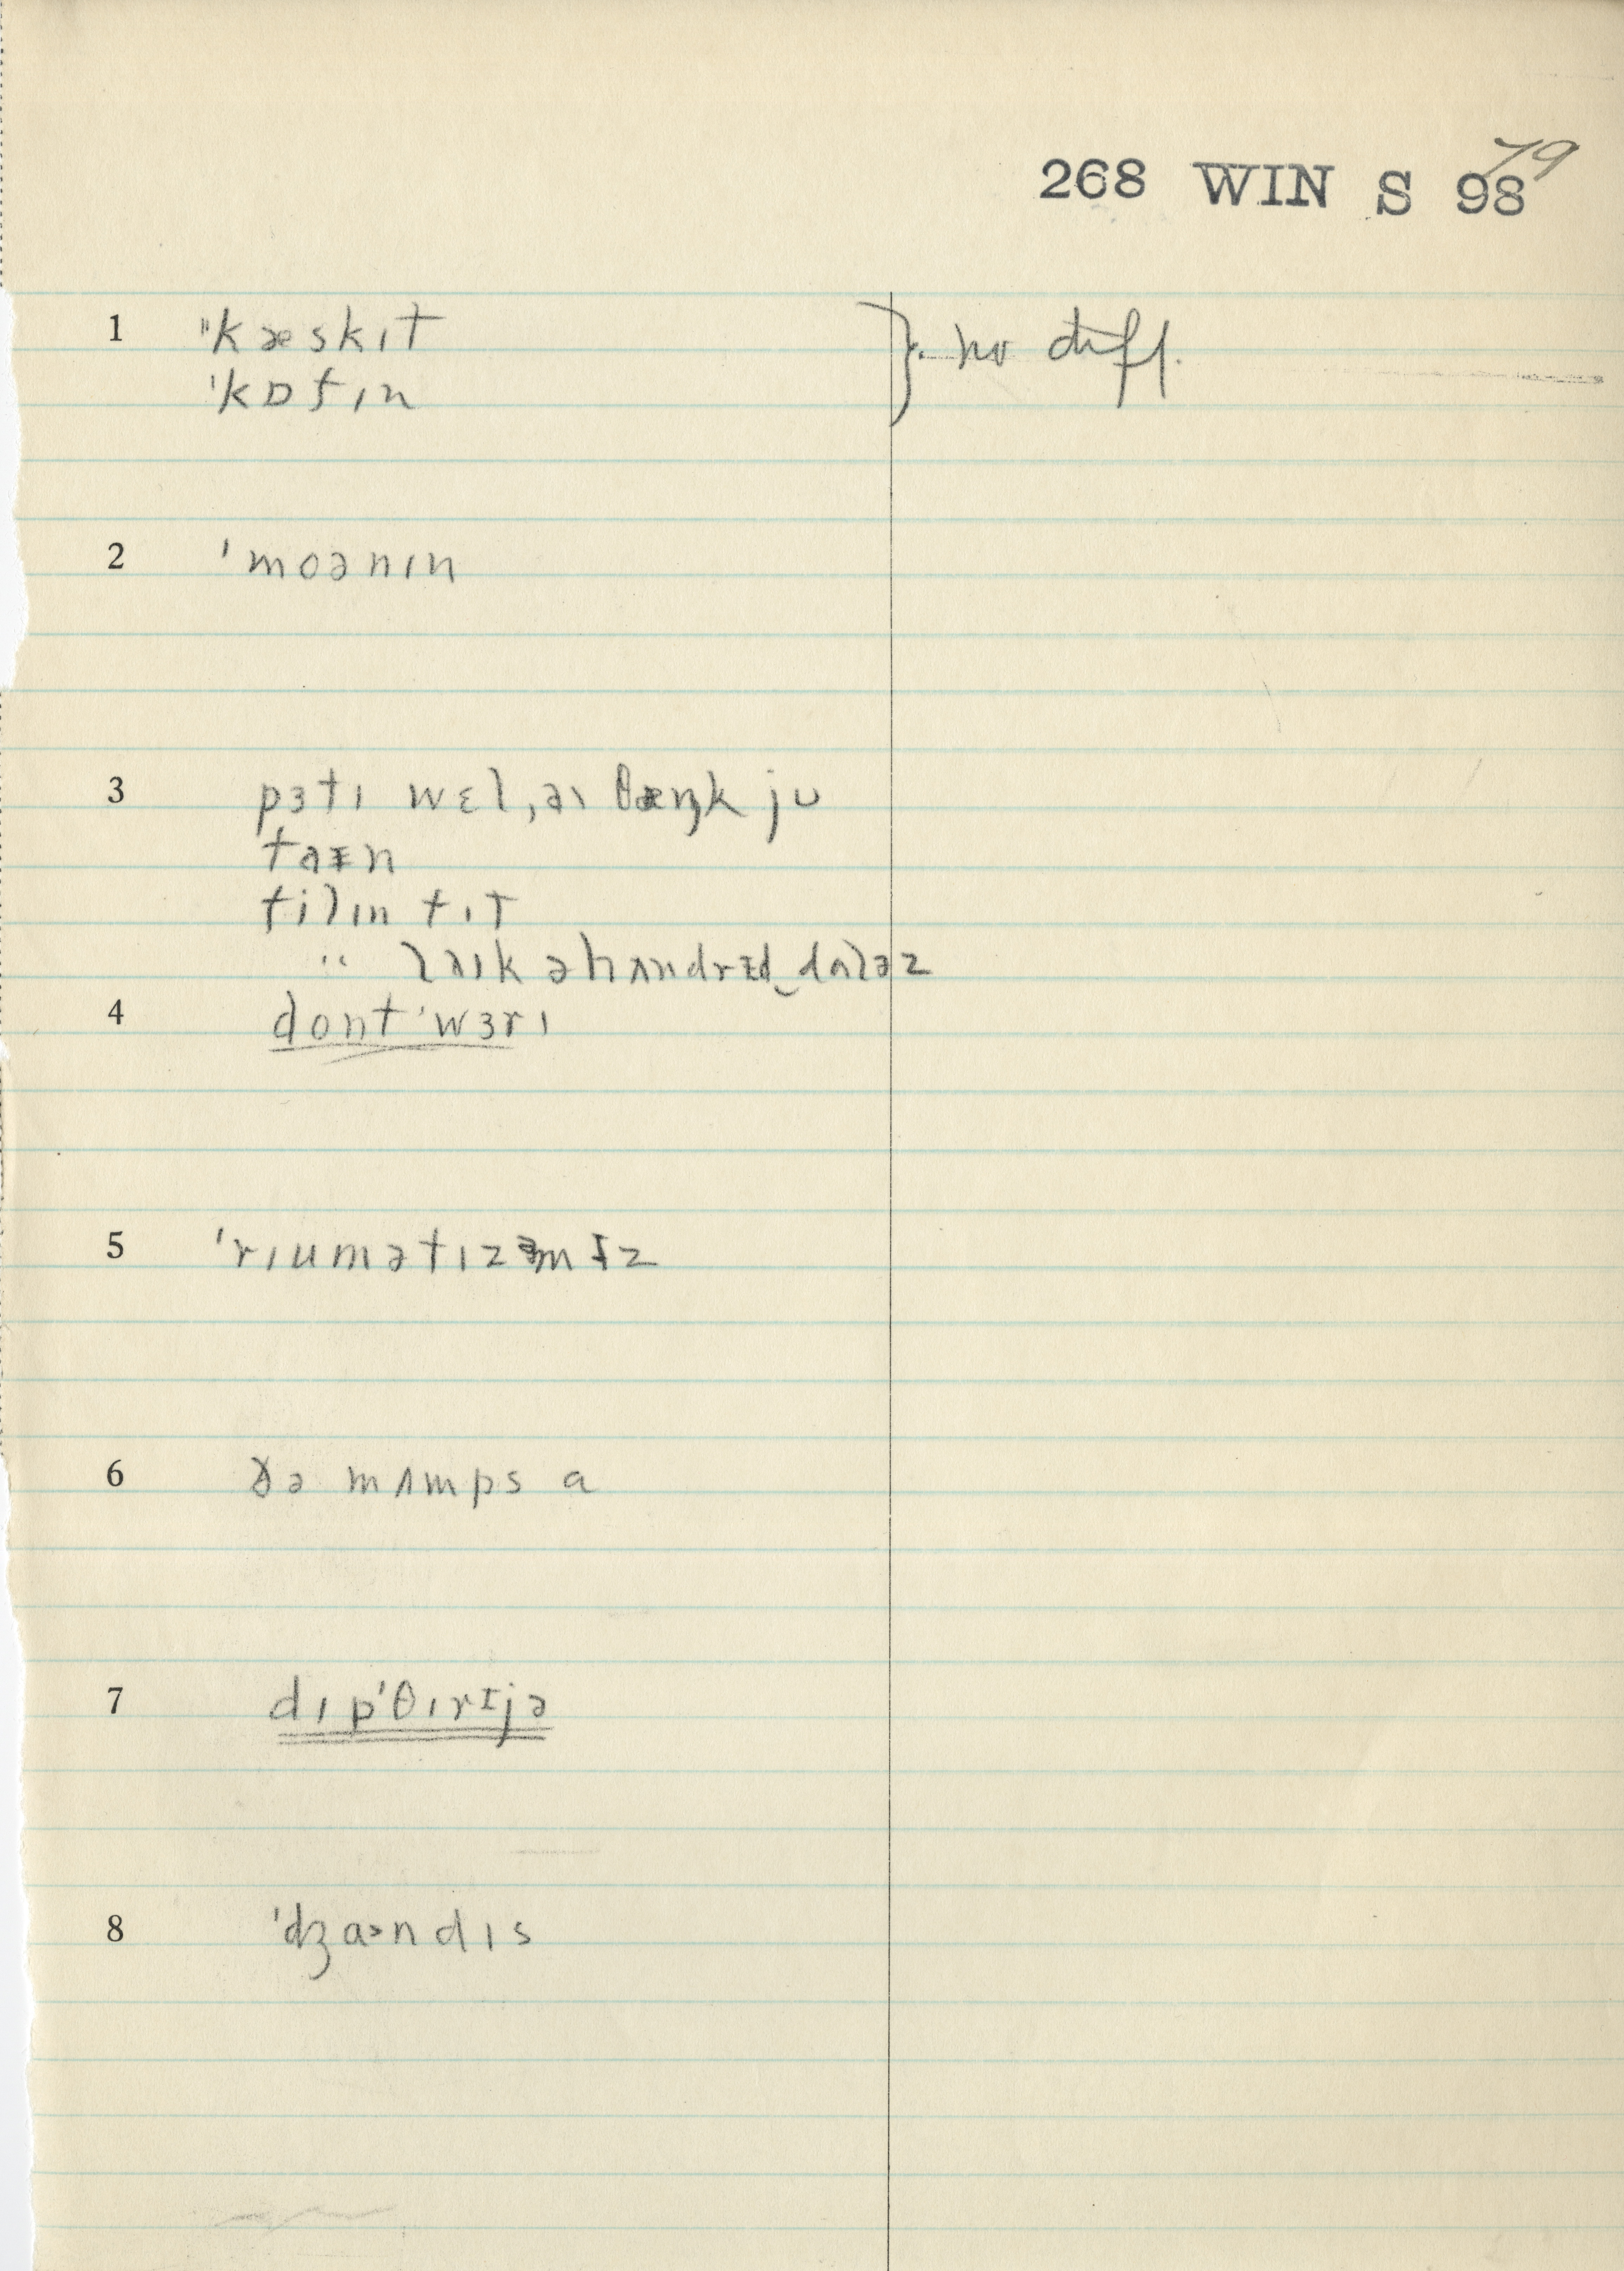 79
268 WIN S 98
1 "kæskɪt } no diff.
ˈkɒfɪn
2 ˈmoənɪn
3 pɜtɪ wɛl, aɪ θæŋk ju
faɪn
filɪn fɪt
" laɪk ə hʌndrɪd‿dɑləz
4 dont ˈwɜrɪ
5 ˈrɪumətɪzəmɪz
6 ðə mʌmps a
7 dɪpˈθɪrɪjə
8 ˈdʒɑndɪs